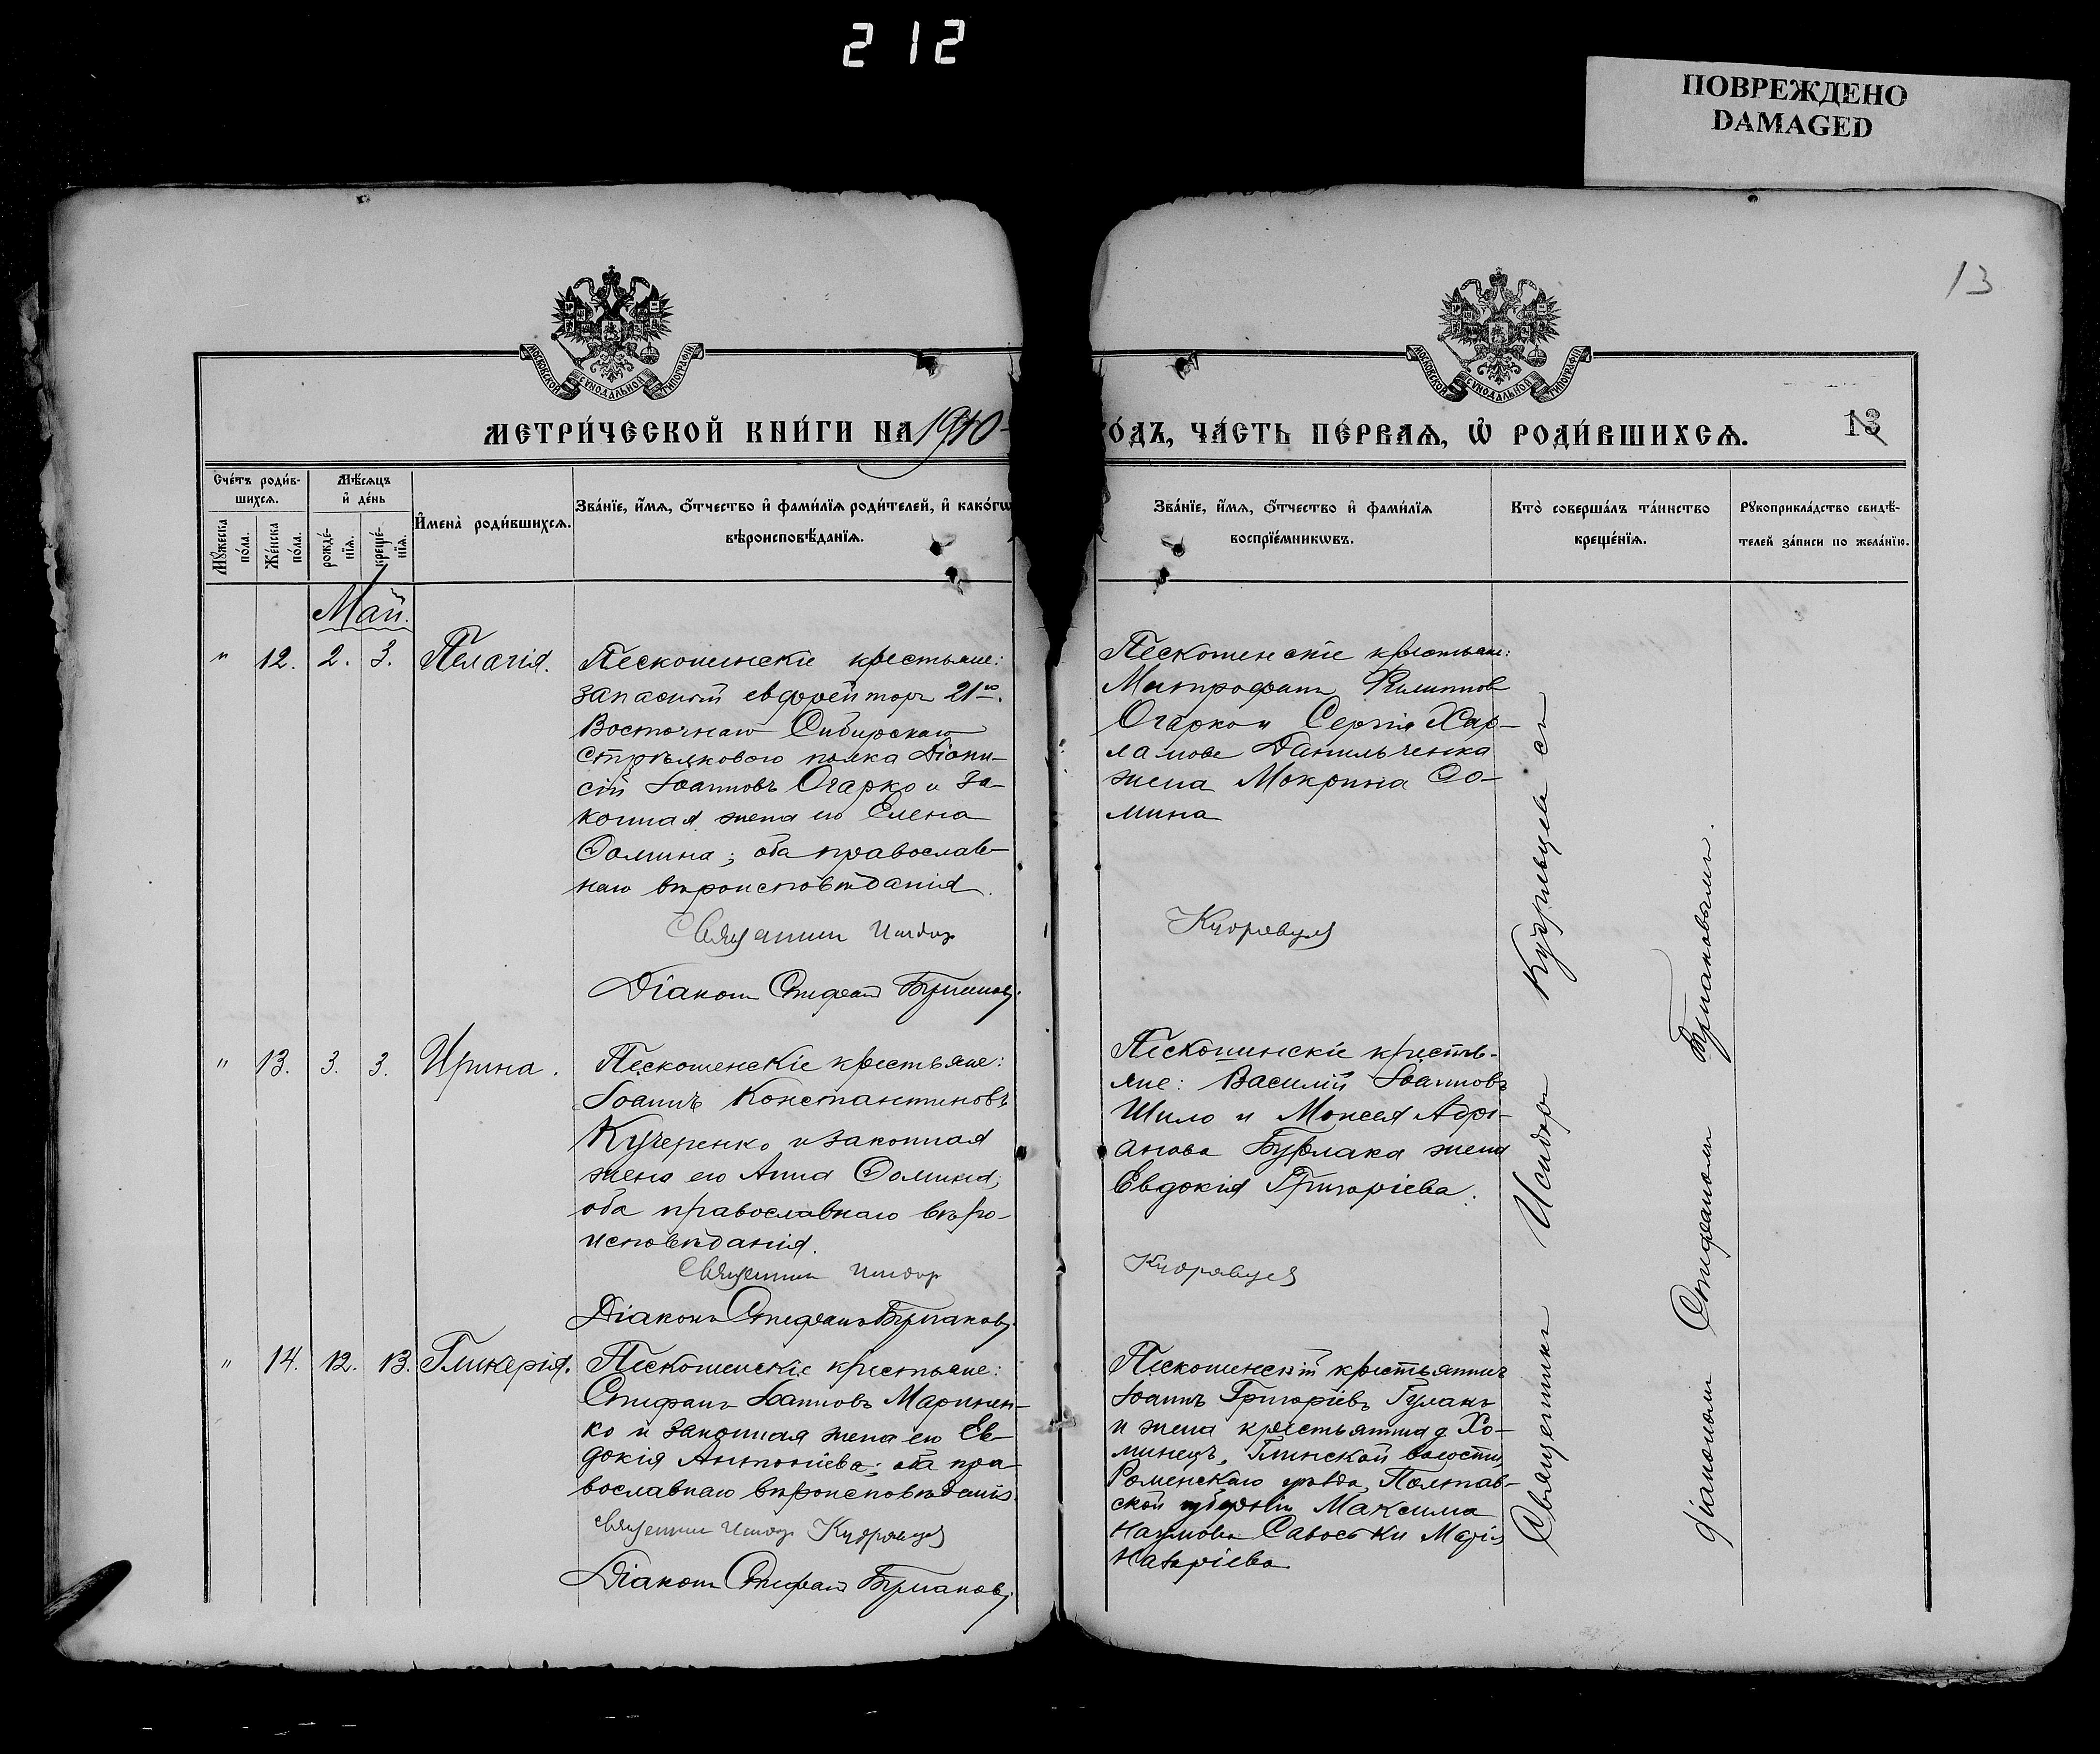 212
ПОВРЕЖДЕНО
DAMAGED
13
МОСКОВСКОЙ СѴНОДАЛЬНОЙ ТИПОГРАФІИ.
МОСКОВСКОЙ СѴНОДАЛЬНОЙ ТИПОГРАФІИ.
МЕТРИ́ЧЕСКОЙ КНИ́ГИ НА 1910
ГО́ДЪ, ЧА́СТЬ ПЕ́РВАѦ, Ѡ҆ РОДИ́ВШИХСѦ.
13
Сче́тъ роди́в-
шихсѧ.
Мꙋ́жеска
по́ла.
Же́нска
по́ла.
Мѣ́сѧцъ
и҆ де́нь
рожде́-
нїѧ.
креще́-
нїѧ.
И҆мена̀ роди́вшихсѧ.
Зва́нїе, и҆́мѧ, ѻ҆́тчество и҆ фами́лїѧ роди́телей, и҆ како́гѡ
вѣроисповѣ́данїѧ.
Зва́нїе, и҆́мѧ, ѻ҆́тчество и҆ фами́лїѧ
воспрїе́мникѡвъ.
Кто̀ соверша́лъ та́инство
креще́нїѧ.
Рꙋкоприкла́дство свидѣ́-
телей за́писи по жела́нїю.
Май.
" 12. 2. 3. Пелагія.
Пескошинскіе крестьяне:
запасный ефрейторъ 21го
Восточнаго Сибирскаго
Стрѣлковаго полка Діони-
сій Іоанновъ Огарко и за-
конная жена его Елена
Ѳомина; оба православ-
наго вѣроисповѣданія.
Священник Исидор
Діаконъ Стефанъ Бурмаковъ.
Пескошенскіе крестьяне:
Митрофанъ Филиппов
Огарко и Сергія Хар-
ламова Данильченка
жена Мокрина Ѳо-
мина
Кудрявцев
" 13. 3. 3. Ирина.
Пескошенскіе крестьяне:
Іоаннъ Константиновъ
Кучеренко и законная
жена его Анна Ѳомина;
оба православнаго вѣро-
исповѣданія.
Священник Исидор
Діаконъ Стефанъ Бурмаковъ.
Пескошинскіе кресть-
яне: Василій Іоанновъ
Шило и Моисея Адрі-
анова Бурлака жена
Евдокія Григоріева.
Кудрявцев
" 14. 12. 13. Гликерія.
Пескошинскіе крестьяне:
Стефанъ Іоанновъ Маринен-
ко и законная жена его Ев-
докія Антоніева; оба пра-
вославнаго вѣроисповѣданія.
Священник Исидор Кудрявцев
Діаконъ Стефанъ Бурмаковъ.
Пескошенскій крестьянинъ
Іоаннъ Григоріевъ Гуланъ
и жена крестьянина д. Хо-
минецъ, Глинской волости
Роменскаго уѣзда, Полтав-
ской губерніи Максима
Наумова Савоськи Марія
Назаріева
Священникъ Исидоръ Кудрявцев съ
діакономъ Стефаномъ Бурмаковымъ.